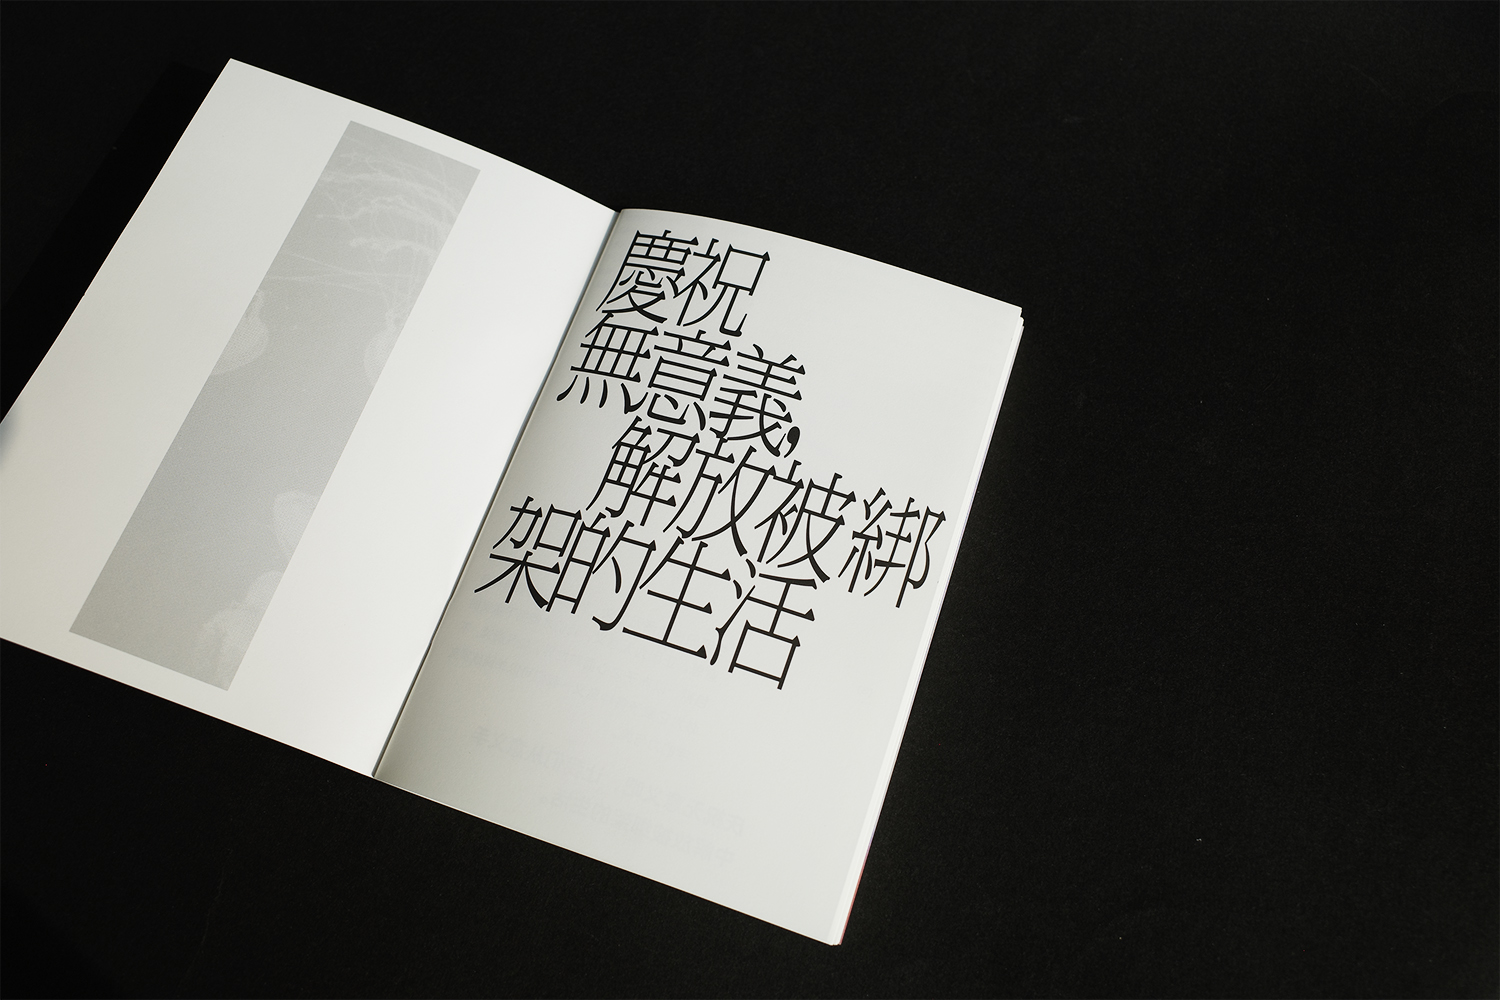 慶祝
無意義,
解放被綁
架的生活